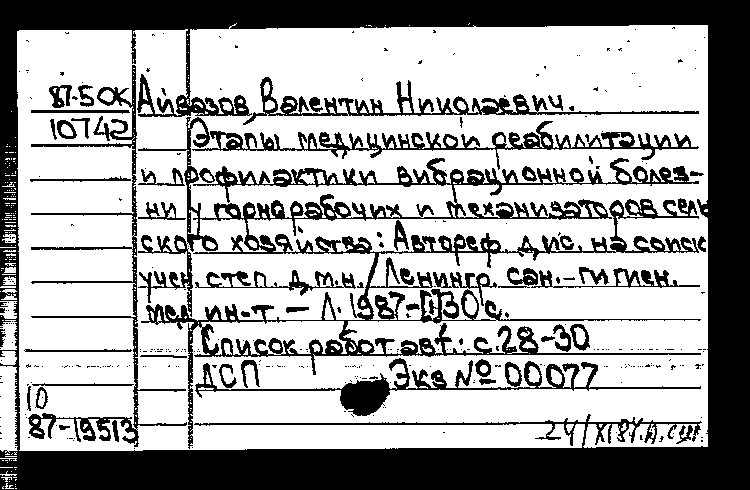 87-5 ОК Айвазов, Валентин Николаевич.
10742 Этапы медицинской реабилитации
и профилактики вибрационной болез-
ни у горнорабочих и механизаторов сель
ского хозяйства: Автореф. дис. на соиск
учен. степ. д.м.н. / Ленингр. сан.-гигиен.
мед. ин-т. - Л. 1987.-[1]30 с.
Список работ авт.: с. 28-30
ДСП Экз № 00077
10
87-19513
24/XI 87.